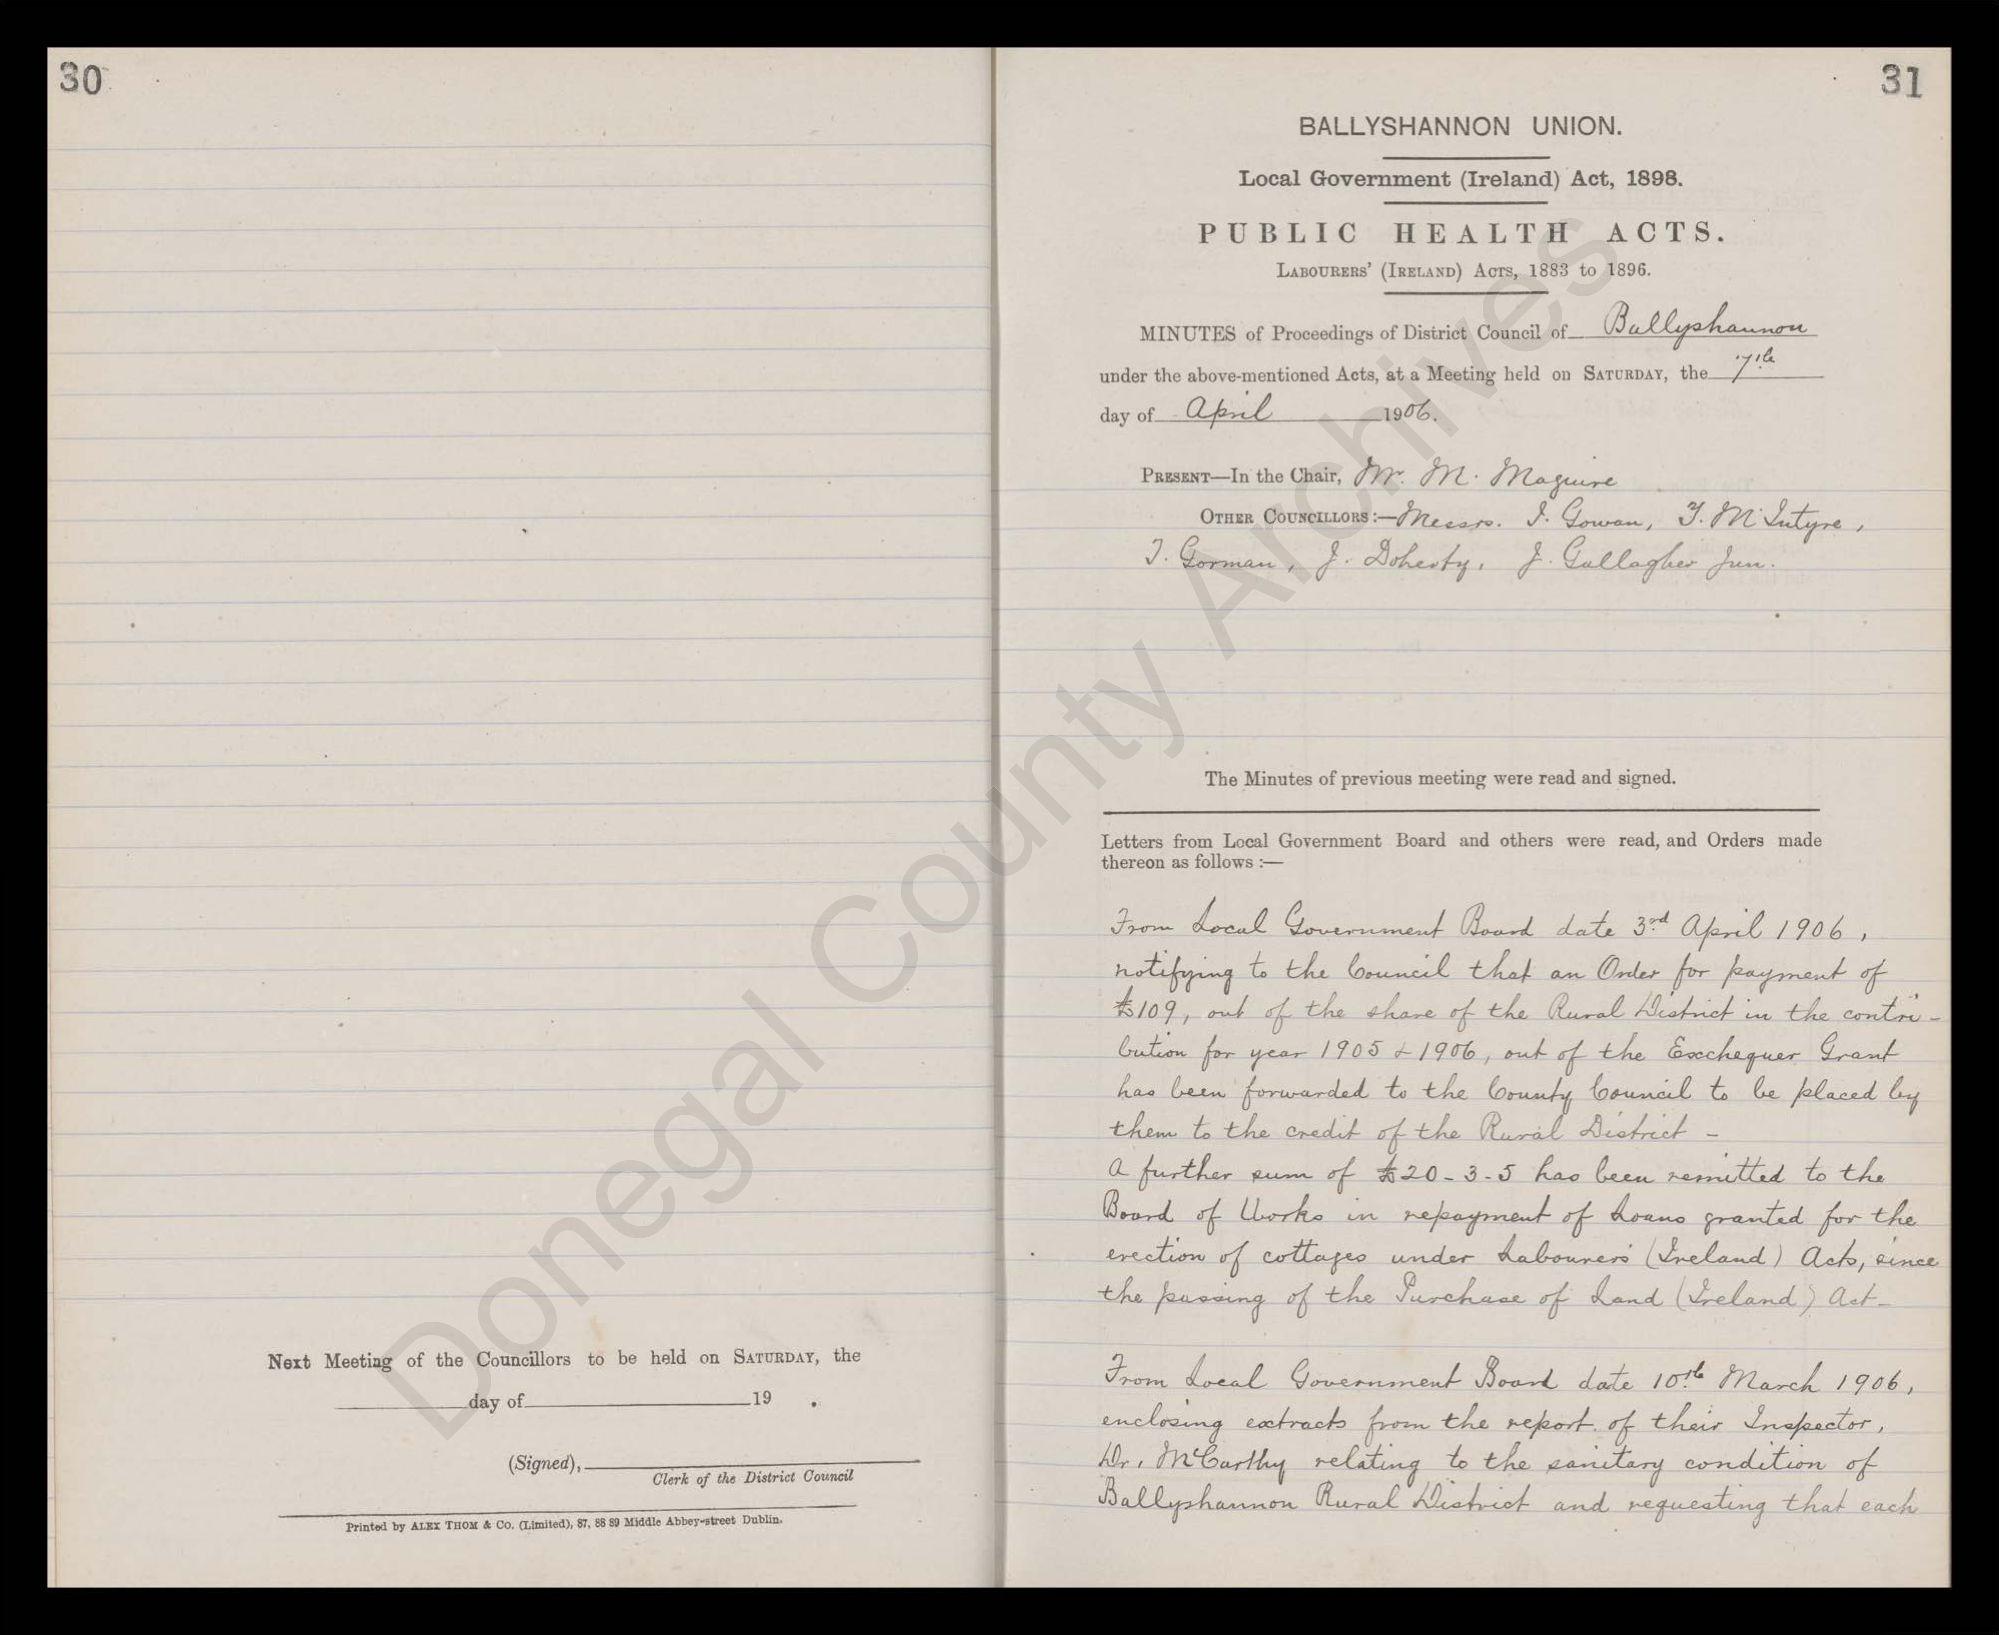 30
Next Meeting of the Councillors to be held on SATURDAY, the
day of 19 .
(Signed),
Clerk of the District Council
Printed by ALEX THOM & Co. (Limited), 87, 88 89 Middle Abbey-street Dublin.
31
BALLYSHANNON UNION.
Local Government (Ireland) Act, 1898.
PUBLIC HEALTH ACTS.
LABOURERS' (IRELAND) ACTS, 1883 to 1896.
MINUTES of Proceedings of District Council of Ballyshannon
under the above-mentioned Acts, at a Meeting held on SATURDAY, the 7th
day of April 1906.
PRESENT—In the Chair, Mr. M. Maguire
OTHER COUNCILLORS:—Messrs. I. Gowan, T. McIntyre,
T. Gorman, J. Doherty, J. Gallagher Jun.
The Minutes of previous meeting were read and signed.
Letters from Local Government Board and others were read, and Orders made
thereon as follows :—
From Local Government Board date 3rd April 1906,
notifying to the Council that an Order for payment of
£109, out of the share of the Rural District in the contri-
bution for year 1905 & 1906, out of the Exchequer Grant
has been forwarded to the County Council to be placed by
them to the credit of the Rural District -
A further sum of £20-3-5 has been remitted to the
Board of Works in repayment of Loans granted for the
erection of cottages under Labourers (Ireland) Acts, since
the passing of the Purchase of Land (Ireland) Act-
From Local Government Board date 10th March 1906,
enclosing extracts from the report of their Inspector,
Dr. McCarthy relating to the sanitary condition of
Ballyshannon Rural District and requesting that each
Donegal County Archives